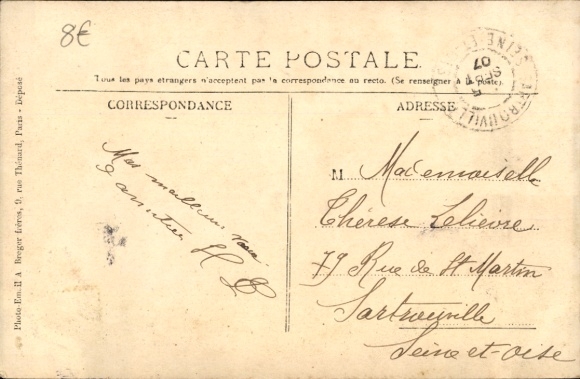 8€
CARTE POSTALE.
Tous les pays étrangers n'acceptent pas la correspondance au recto. (Se renseigner à la poste).
CORRESPONDANCE
ADRESSE
Mes meilleurs
d'amitiés
H L
M Mademoiselle
Thérèse Lelièvre
79 Rue de St Martin
Sartrouville
Seine-et-Oise
SARTROUVILLE
SEINE ET
5
SEPT
07
Photo-Email A Breger frères, 9, rue Thénard, Paris - Déposé